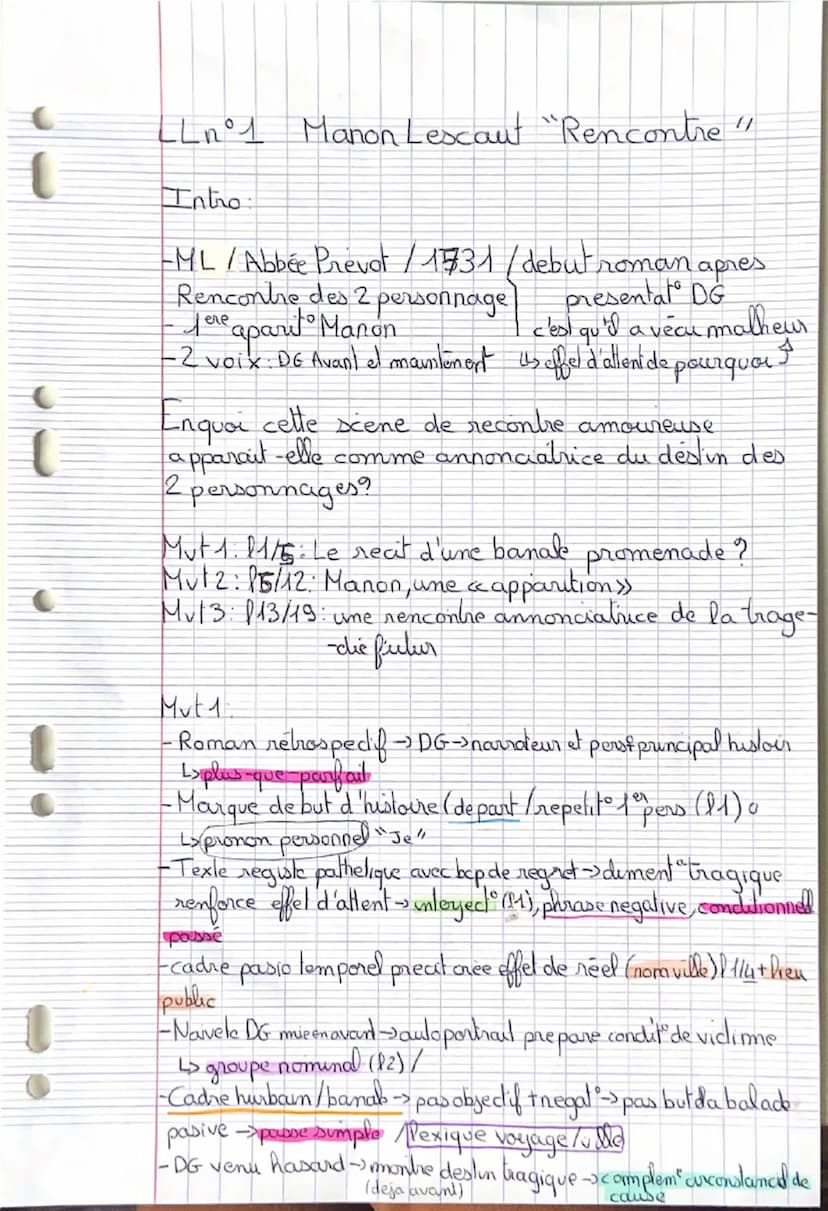 LLn°1 Manon Lescaut "Rencontre"
Intro:
-ML / Abbée Prévot / 1731 / debut roman apres
Rencontre des 2 personnage presentat° DG
- 1ere aparit° Manon c'est qu'il a vécu malheur
- 2 voix: DG Avant et maintenent ↳ effet d'attent de pourquoi ?
Enquoi cette scene de recontre amoureuse
apparait-elle comme annonciatrice du destin des
2 personnages?
Mvt1: l1/5: Le recit d'une banale promenade ?
Mvt2: l5/12: Manon, une «apparition»
Mvt3: l13/19: une rencontre annonciatrice de la trage-
-die futur
Mvt1:
- Roman rétrospectif → DG → narrateur et perso principal histoir
↳ plus-que-parfait
- Marque debut d'histoire (depart / repetit° 1er pers (l1)
↳ pronon personnel "Je"
- Texte registe pathetique avec bcp de regret → tragique
renforce effet d'attent → interject° (l1), phrase negative, conditionnel
passé
-cadre temporel crée effet de réel (nom ville) l 1/4 + lieu
public
- Naiveté DG mise en avant → autoportrait prepare condit° de victime
↳ groupe nominal (l2) /
-Cadre hurbain/banale → pas objectif + negat° → pas but da balade
pasive → passe simple / lexique voyage/ville
- DG venu hasard → montre destin tragique → complem† circonstanciel de
(deja avant) cause